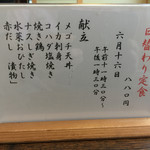 日替わり定食
八八〇円
六月十六日
午前十一時三〇分〜
午後一時三〇分
献立
メゴチ天丼
イカ刺身
コハダ塩焼き
焼き鶏
ナスしぎ焼き
水菜おひたし
赤だし 漬物